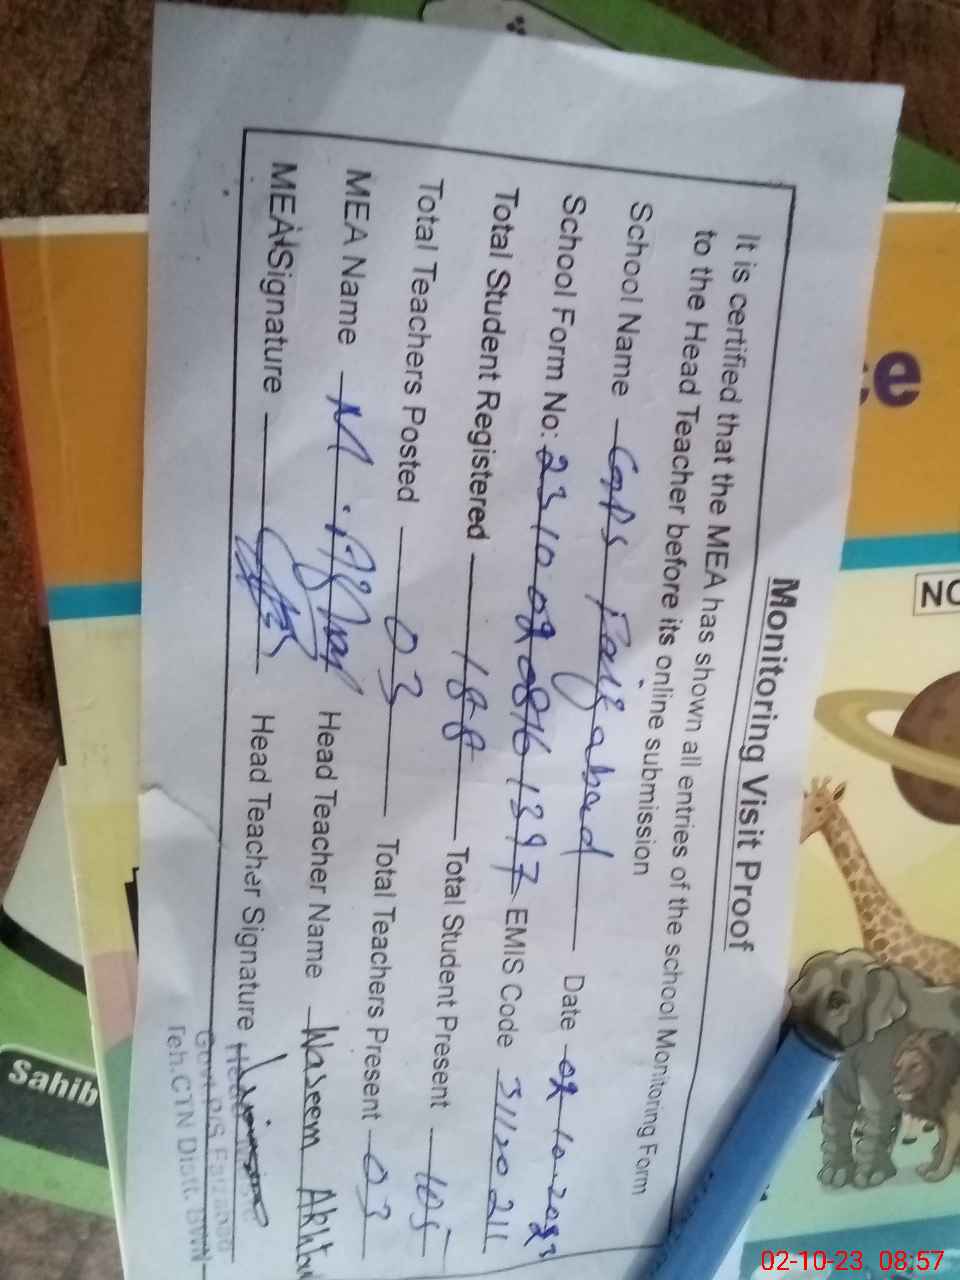 Monitoring Visit Proof
It is certified that the MEA has shown all entries of the school Monitoring Form
to the Head Teacher before its online submission
School Name GPS Faizabad Date 02-10-2023
School Form No: EMIS Code 31120211
Total Student Registered 188 Total Student Present 105
Total Teachers Posted 03 Total Teachers Present 03
MEA Name M. Afzaal Head Teacher Name Waseem Akhtar
MEA Signature Head Teacher Signature
Head
Govt. P/S Faizabad
Teh. CTN Distt. BWN
Sahib
ON
02-10-23 08:57